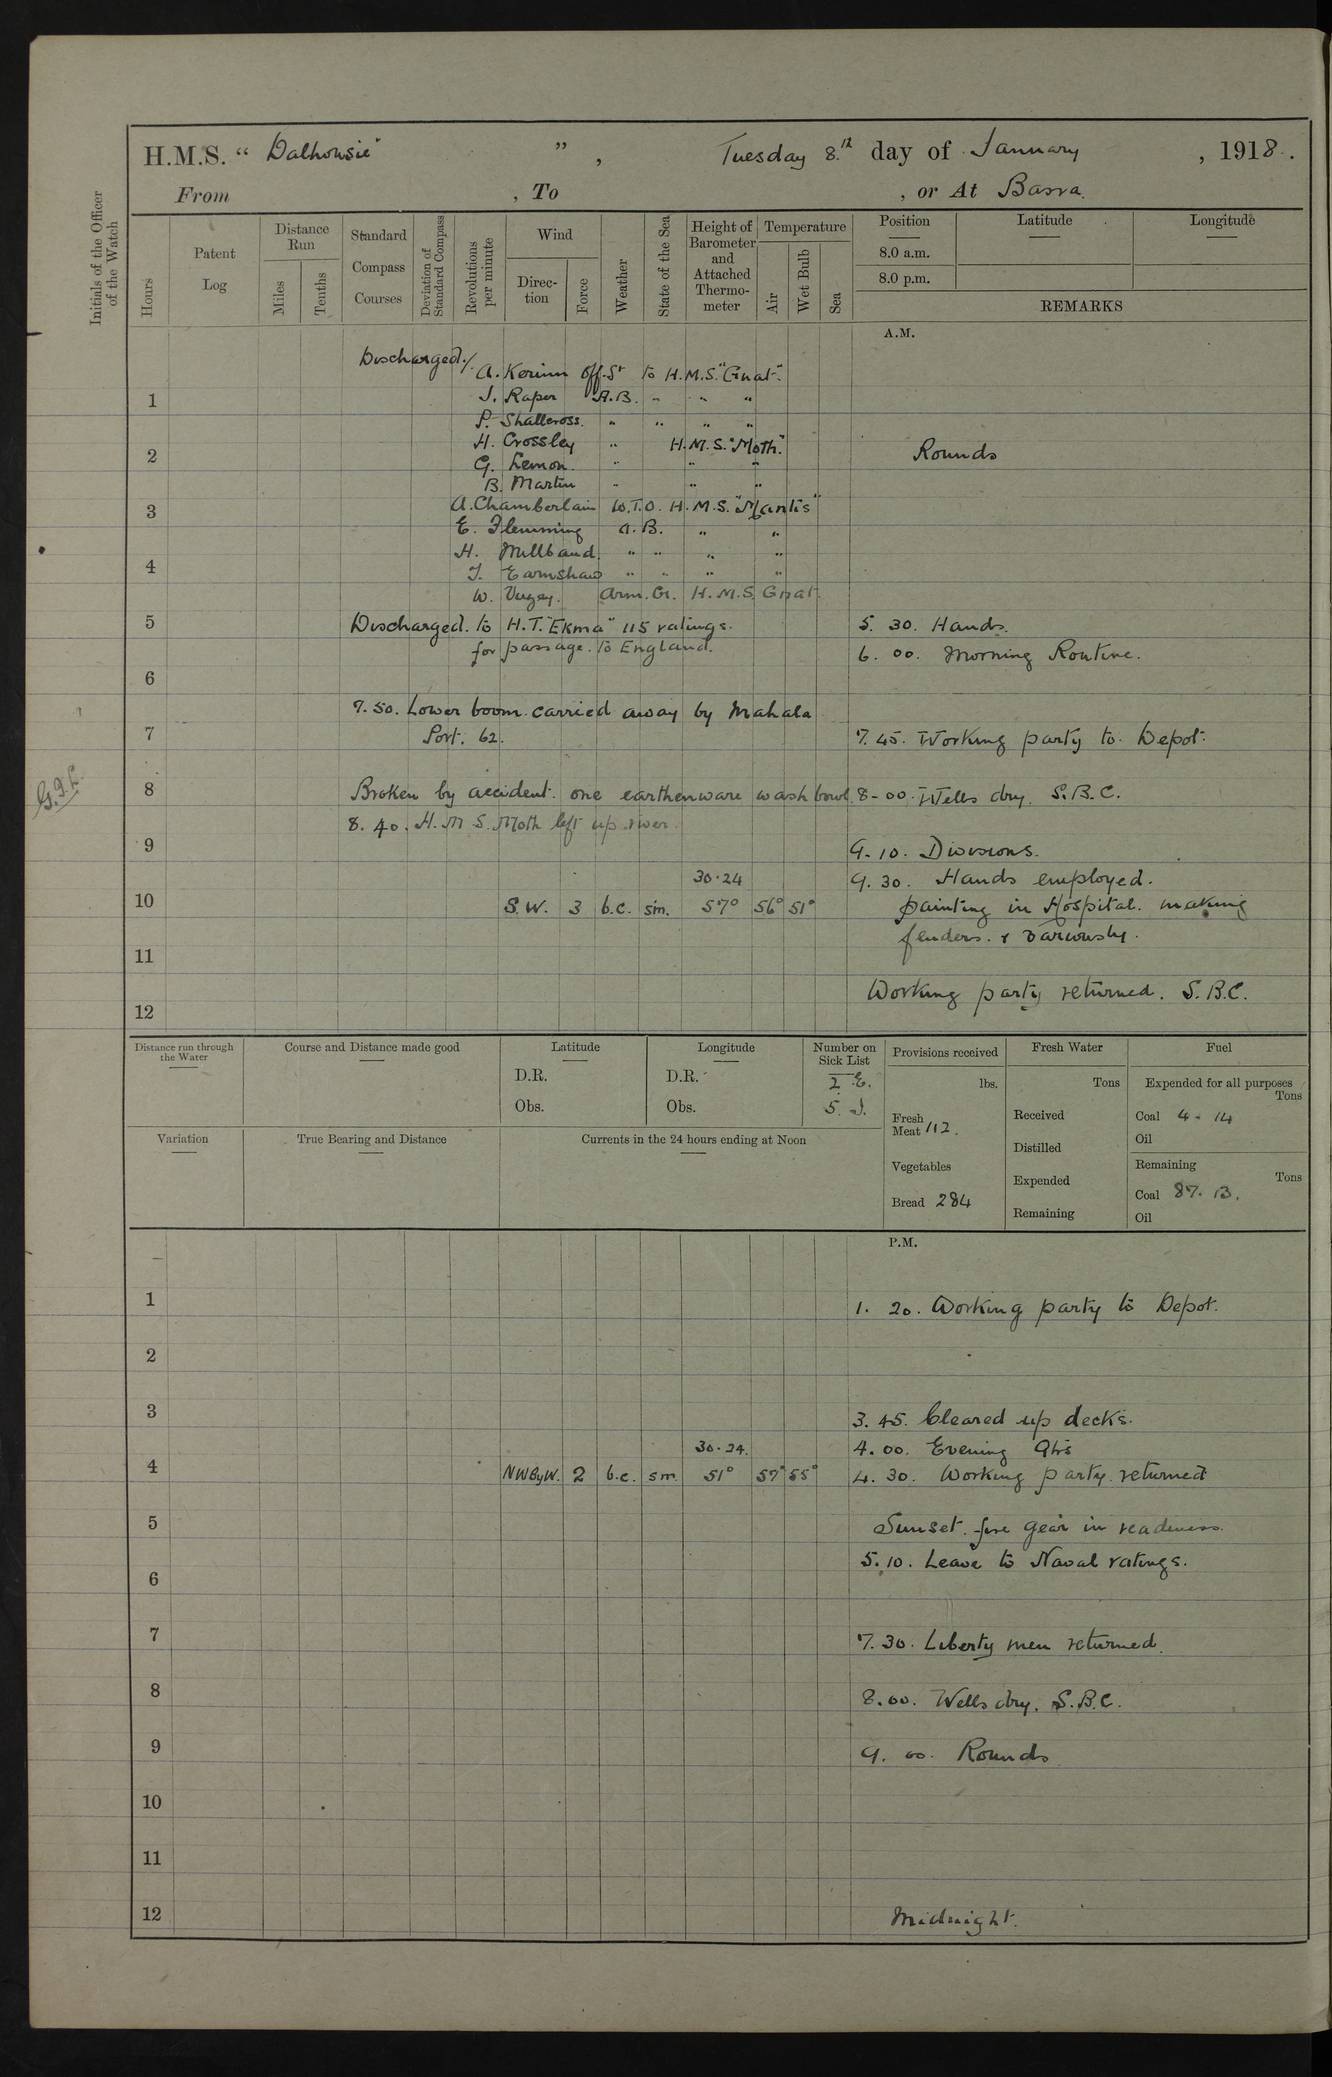 H.M.S. “ Dalhousie" ” , Tuesday 8.th day of January , 1918.
From , To , or At Basra.
Initials of the Officer of the Watch
Hours
Patent Log
Distance Run
Miles
Tenths
Standard Compass Courses
Deviation of Standard Compass
Revolutions per minute
Wind
Direction
Force
Weather
State of the Sea
Height of Barometer and Attached Thermometer
Temperature
Air
Wet Bulb
Sea
Position
8.0 a.m.
8.0 p.m.
Latitude
Longitude
REMARKS
A.M.
Discharged./. A. Off. St to H.M.S. "Gnat".
1 J. Raper A.B. " " "
P. Shallcross. " " " "
H. Crossley " H.M.S. "Moth."
2 Rounds
G. Lemon. " " "
B. Martin " " "
A. Chamberlain W.T.O. H.M.S. "Mantis"
3
E. Flemming A.B. " "
H. Millband. " " " "
4
J. Earnshaw " " " "
W. Arm. Cr. H.M.S. Gnat.
5 Discharged. to H.T. "Ekma" 115 ratings. 5. 30. Hands.
for passage. to England. 6. 00. Morning Routine.
6
7. 50. Lower boom carried away by Mahala
7 Port. 62. 7. 45. Working party to Depot.
8 Broken by accident. one earthenware wash bowl. 8-00. Wells dry. S.B.C.
8. 40. H.M.S. Moth left up river.
9 9. 10. Divisions.
30.24 9. 30. Hands employed.
10 S.W. 3 b.c. sm. 57° 56° 51° painting in Hospital. making
fenders. & variously.
11
Working party returned. S.B.C.
12
Distance run through the Water
Course and Distance made good
Latitude
D.R.
Obs.
Longitude
D.R.
Obs.
Number on Sick List
2 E.
5. I.
Provisions received
lbs.
Fresh Meat 112.
Vegetables
Bread 284
Fresh Water
Tons
Received
Distilled
Expended
Remaining
Fuel
Expended for all purposes
Tons
Coal 4 - 14
Oil
Remaining
Tons
Coal 87. 13.
Oil
Variation
True Bearing and Distance
Currents in the 24 hours ending at Noon
P.M.
1 1. 20. Working party to Depot.
2
3 3. 45. Cleared up decks.
30.24. 4. 00. Evening Qtrs
4 NWByW. 2 b.c. sm. 51° 57° 55° 4. 30. Working party returned
5 Sunset. fire gear in readiness.
5. 10. Leave to Naval ratings.
6
7 7. 30. Liberty men returned.
8 8.00. Wells dry. S.B.C.
9 9. 00. Rounds
10
11
12 Midnight.